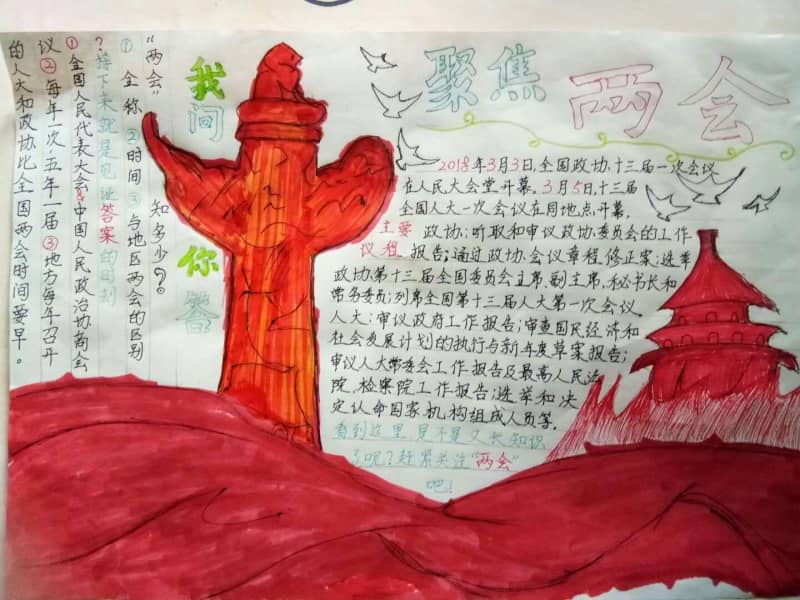 聚焦两会
2018年3月3日,全国政协,十三届一次会议
在人民大会堂开幕。3月5日,十三届
全国人大一次会议在同地点,开幕。
主要 政协:听取和审议政协委员会的工作
议程 报告;通过政协会议章程修正案;选举
政协第十三届全国委员会主席,副主席,秘书长和
常务委员;列席全国第十三届人大第一次会议。
人大:审议政府工作报告;审查国民经济和
社会发展计划的执行与新年度草案报告;
审议人大常委会工作报告及最高人民法
院,检察院工作报告;选举和决
定认命国家机构组成人员等。
看到这里是不是又长知识
了呢?赶紧关注“两会”
吧!
我问
你答
“两会”知多少?。
①全称②时间③与地区两会的区别
?接下来就是见证答案的时刻
①全国人民代表大会中国人民政治协商会
议②每年一次,五年一届③地方每年召开
的人大和政协比全国两会时间要早。